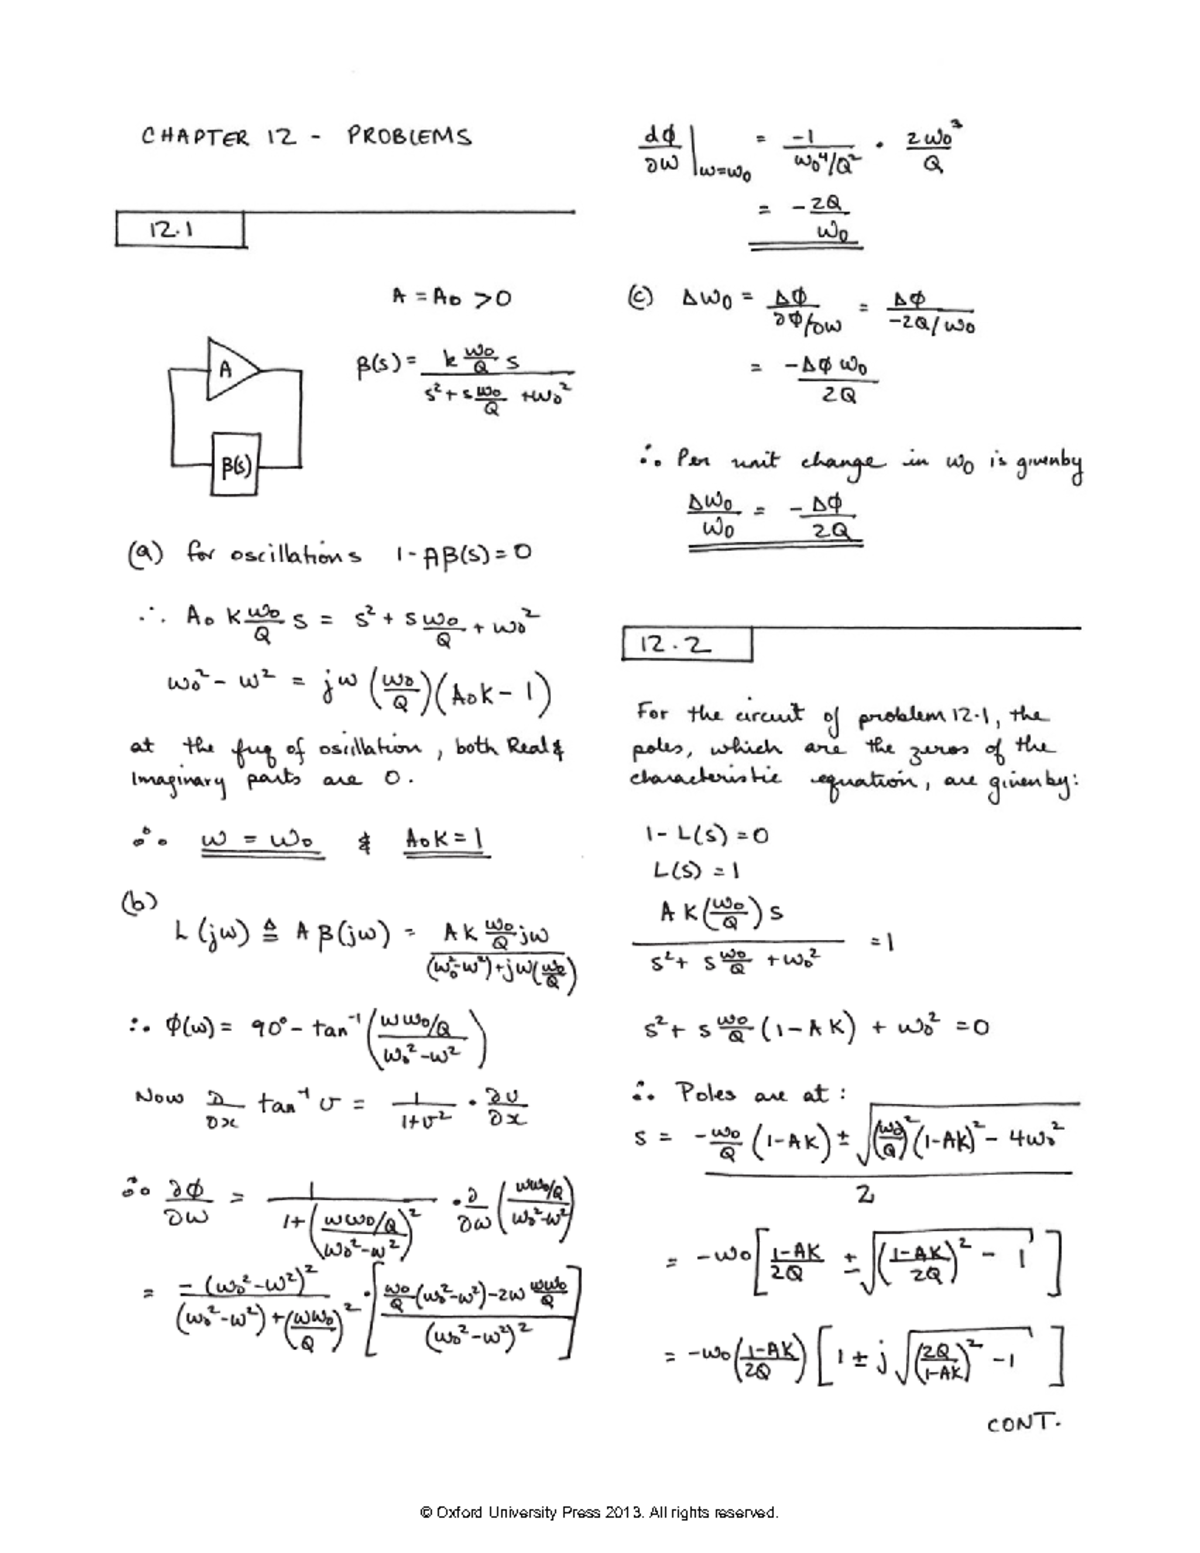 CHAPTER 12 - PROBLEMS
12.1
A = A₀ > 0
A
β(s)
β(s) = k ω₀/Q s / (s² + s ω₀/Q + ω₀²)
(a) for oscillations 1 - Aβ(s) = 0
∴ A₀ k ω₀/Q s = s² + s ω₀/Q + ω₀²
ω₀² - ω² = jω (ω₀/Q)(A₀K - 1)
at the frq of oscillation, both Real &
Imaginary parts are 0.
∴ ω = ω₀ & A₀K = 1
(b)
L(jω) ≜ A β(jω) = AK ω₀/Q jω / ((ω₀²-ω²)+jω(ω₀/Q))
∴ φ(ω) = 90° - tan⁻¹ (ωω₀/Q / (ω₀²-ω²))
Now ∂/∂x tan⁻¹ v = 1/(1+v²) · ∂v/∂x
∴ ∂φ/∂ω = 1/(1+(ωω₀/Q / (ω₀²-ω²))²) · ∂/∂ω (ωω₀/Q / (ω₀²-ω²))
= -(ω₀²-ω²)² / ((ω₀²-ω²)+(ωω₀/Q)²) · [(ω₀/Q (ω₀²-ω²) - 2ω ωω₀/Q) / (ω₀²-ω²)²]
dφ/∂ω |ω=ω₀ = -1/(ω₀⁴/Q²) · 2ω₀³/Q
= -2Q/ω₀
(c) Δω₀ = Δφ/(∂φ/∂ω) = Δφ/(-2Q/ω₀)
= -Δφ ω₀/2Q
∴ Per unit change in ω₀ is given by
Δω₀/ω₀ = - Δφ/2Q
12.2
For the circuit of problem 12.1, the
poles, which are the zeros of the
characteristic equation, are given by:
1 - L(s) = 0
L(s) = 1
AK(ω₀/Q)s / (s² + s ω₀/Q + ω₀²) = 1
s² + s ω₀/Q (1 - AK) + ω₀² = 0
∴ Poles are at:
s = (-ω₀/Q (1-AK) ± √((ω₀/Q)²(1-AK)² - 4ω₀²)) / 2
= -ω₀ [(1-AK)/2Q ± √(((1-AK)/2Q)² - 1)]
= -ω₀ ((1-AK)/2Q) [1 ± j √((2Q/(1-AK))² - 1)]
CONT.
© Oxford University Press 2013. All rights reserved.